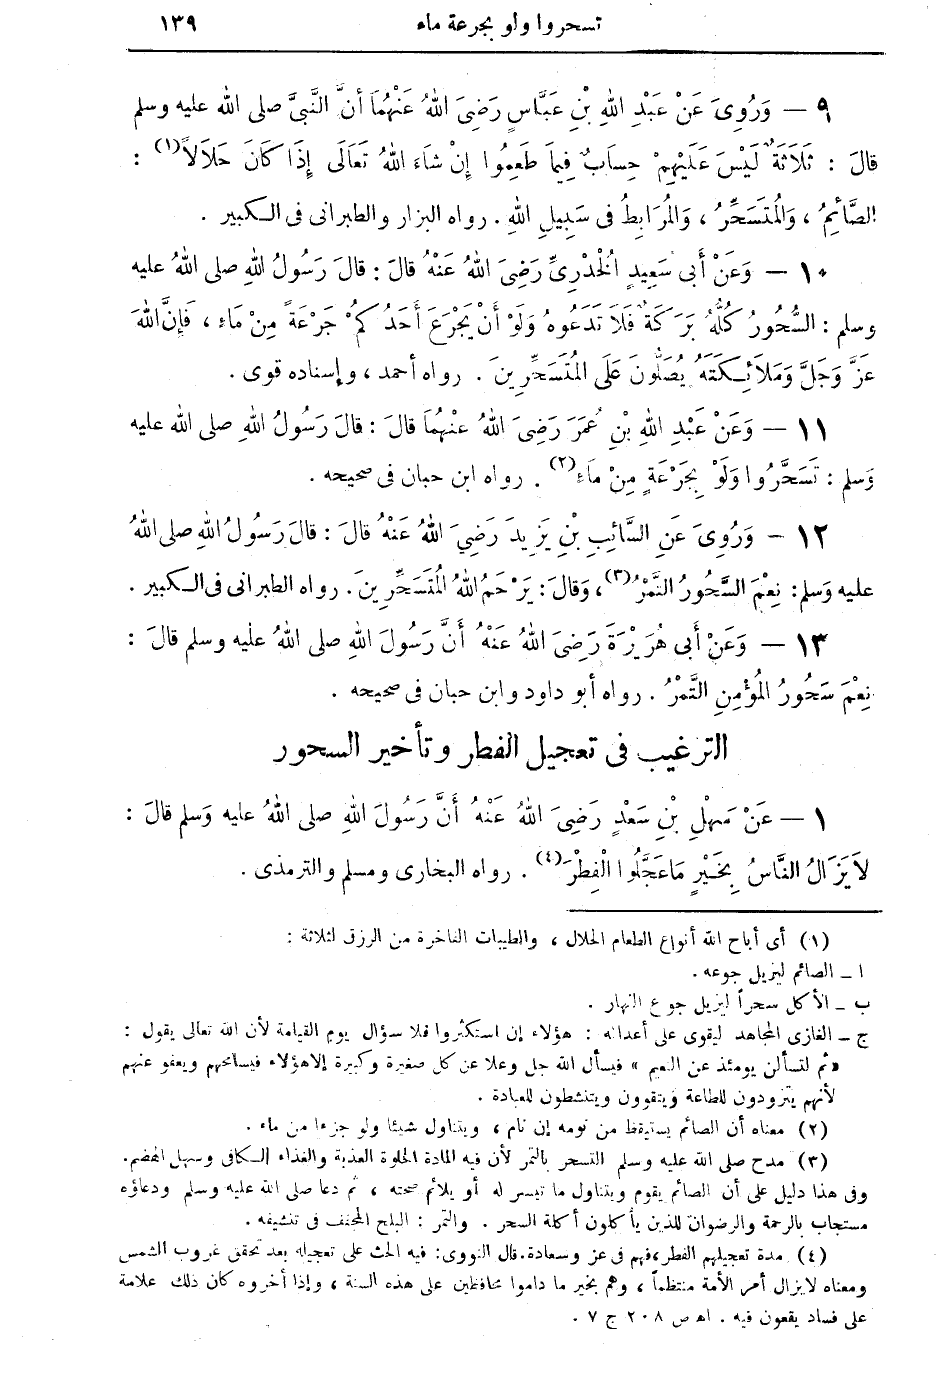 تسحروا ولو بجرعة ماء ١٣٩
٩ — وَرُوِىَ عَنْ عَبْدِ اللهِ بْنِ عَبَّاسٍ رَضِىَ اللهُ عَنْهُمَا أَنَّ النَّبِىَّ صلى الله عليه وسلم
قالَ : ثَلَاثَةٌ لَيْسَ عَلَيْهِمْ حِسَابٌ فِيمَا طَعِمُوا إِنْ شَاءَ اللهُ تَعَالَى إِذَا كَانَ حَلَالاً(١) :
الصَّائِمُ ، وَالْمُتَسَحِّرُ ، وَالْمُرَابِطُ فى سَبِيلِ اللهِ . رواه البزار والطبرانى فى الكبير .
١٠ — وَعَنْ أَبى سَعِيدٍ الْخُدْرِىِّ رَضِىَ اللهُ عَنْهُ قالَ : قالَ رَسُولُ اللهِ صلى اللهُ عليه
وسلم : السَّحُورُ كُلُّهُ بَرَكَةٌ فَلاَ تَدَعُوهُ وَلَوْ أَنْ يَجْرَعَ أَحَدُكُمْ جَرْعَةً مِنْ مَاءٍ ، فَإِنَّ اللهَ
عَزَّ وَجَلَّ وَمَلَائِكَتَهُ يُصَلُّونَ عَلَى الْمُتَسَحِّرِينَ . رواه أحمد ، وإسناده قوى .
١١ — وَعَنْ عَبْدِ اللهِ بْنِ عُمَرَ رَضِىَ اللهُ عَنْهُمَا قالَ : قالَ رَسُولُ اللهِ صلى الله عليه
وَسلم : تَسَحَّرُوا وَلَوْ بِجَرْعَةٍ مِنْ مَاءٍ(٢) . رواه ابن حبان فى صحيحه .
١٢ — وَرُوِىَ عَنِ السَّائِبِ بْنِ يَزِيدَ رَضِيَ اللهُ عَنْهُ قالَ : قالَ رَسُولُ اللهِ صلى اللهُ
عليه وَسلم: نِعْمَ السَّحُورُ التَّمْرُ(٣)، وَقالَ: يَرْحَمُ اللهُ الْمُتَسَحِّرِينَ. رواه الطبرانى فى الكبير .
١٣ — وَعَنْ أَبى هُرَيْرَةَ رَضِىَ اللهُ عَنْهُ أَنَّ رَسُولَ اللهِ صلى اللهُ عليه وسلم قالَ :
نِعْمَ سَحُورُ الْمُؤْمِنِ التَّمْرُ . رواه أبو داود وابن حبان فى صحيحه .
الترغيب فى تعجيل الفطر وتأخير السحور
١ — عَنْ سَهْلِ بْنِ سَعْدٍ رَضِىَ اللهُ عَنْهُ أَنَّ رَسُولَ اللهِ صلى اللهُ عليه وَسلم قالَ :
لاَ يَزَالُ النَّاسُ بِخَيْرٍ مَاعَجَّلُوا الْفِطْرَ(٤) . رواه البخارى ومسلم والترمذى .
(١) أى أباح الله أنواع الطعام الحلال ، والطيبات الفاخرة من الرزق لثلاثة :
ا ـ الصائم ليزيل جوعه .
ب ـ الأكل سحراً ليزيل جوع النهار .
ج ـ الغازى المجاهد ليقوى على أعدائه : هؤلاء إن استكثروا فلا سؤال يوم القيامة لأن الله تعالى يقول :
« ثم لتسألن يومئذ عن النعيم » فيسأل الله جل وعلا عن كل صغيرة وكبيرة إلا هؤلاء فيسامحهم ويعفو عنهم
لأنهم يتزودون للطاعة ويتقوون ويتنشطون للعبادة .
(٢) معناه أن الصائم يستيقظ من نومه إن نام ، ويتناول شيئا ولو جزءا من ماء .
(٣) مدح صلى الله عليه وسلم التسحر بالتمر لأن فيه المادة الحلوة العذبة والغذاء الكافى وسهل الهضم.
وفى هذا دليل على أن الصائم يقوم ويتناول ما تيسر له أو يلائم صحته ، ثم دعا صلى الله عليه وسلم ودعاؤه
مستجاب بالرحمة والرضوان للذين يأكلون أكلة السحر . والتمر : البلح المجفف فى تنشيفه .
(٤) مدة تعجيلهم الفطر ،فهم فى عز وسعادة. قال النووى: فيه الحث على تعجيله بعد تحقق غروب الشمس
ومعناه لايزال أمر الأمة منتظماً ، وهم بخير ما داموا محافظين على هذه السنة ، وإذا أخروه كان ذلك علامة
على فساد يقعون فيه . اه ص ٢٠٨ ج ٧ .